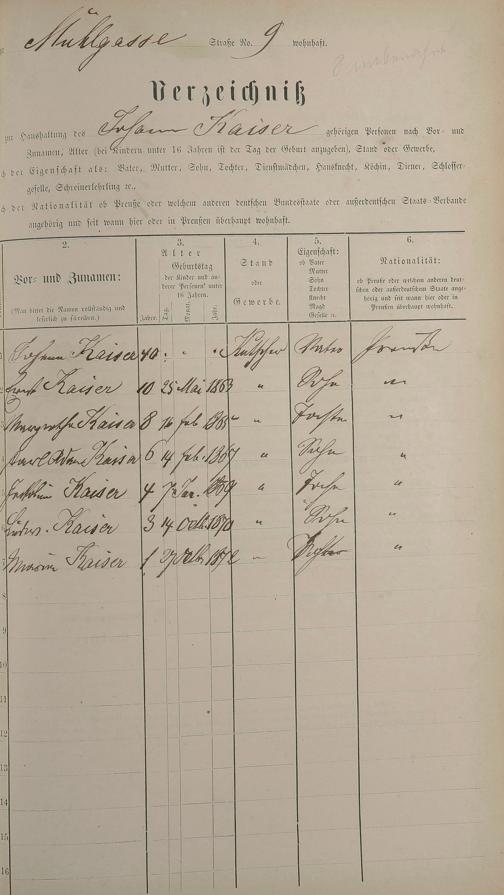 Mühlgasse Straße No. 9 wohnhaft.
Verzeichniß
zur Haushaltung des Johann Kaiser gehörigen Personen nach Vor- und
Zunamen, Alter (bei Kindern unter 16 Jahren ist der Tag der Geburt anzugeben), Stand oder Gewerbe,
der Eigenschaft als: Vater, Mutter, Sohn, Tochter, Dienstmädchen, Hausknecht, Köchin, Diener, Schlosser-
geselle, Schreinerlehrling ꝛc.,
der Nationalität ob Preuße oder welchem anderen deutschen Bundesstaate oder außerdeutschen Staats-Verbande
angehörig und seit wann hier oder in Preußen überhaupt wohnhaft.
2. 3. 4. 5. 6.
Vor- und Zunamen:
(Man bittet die Namen vollständig und
leserlich zu schreiben.)
Alter
Geburtstag
der Kinder und an-
derer Personen unter
16 Jahren.
Jahre. Tag. Monat. Jahr.
Stand
oder
Gewerbe.
Eigenschaft:
ob Vater
Mutter
Sohn
Tochter
Knecht
Magd
Geselle ꝛc.
Nationalität:
ob Preuße oder welchem anderen deut-
schen oder außerdeutschen Staate ange-
hörig und seit wann hier oder in
Preußen überhaupt wohnhaft.
Johann Kaiser 40 " " " Kutscher Vater Preuße
Kaiser 10 25 Mai 1863 " Sohn "
Margretha Kaiser 8 feb 1865 " Tochter "
Karl Adam Kaiser 6 14 feb. 1867 " Sohn "
Kaiser 4 7 Jan. 1869 " Tochter "
Kaiser 3 14 Octb. 1870 " Sohn "
Kaiser 1 27 1872 " Tochter "
8
9
10
11
12
13
14
15
16